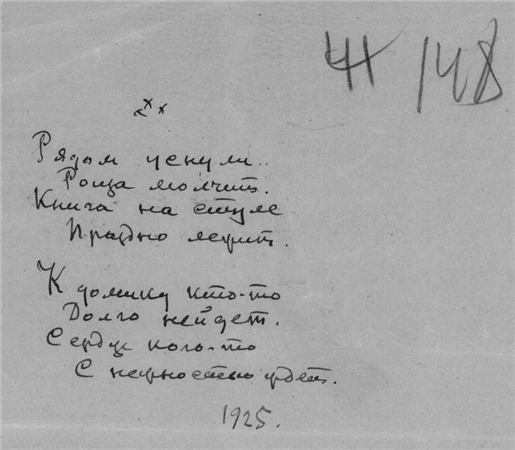 148
***
Рядом уснули..
Роща молчит.
Книга на стуле
Праздно лежит.
К домику кто-то
Долго нейдет.
Сердце кого-то
С нежностью ждет.
1925.